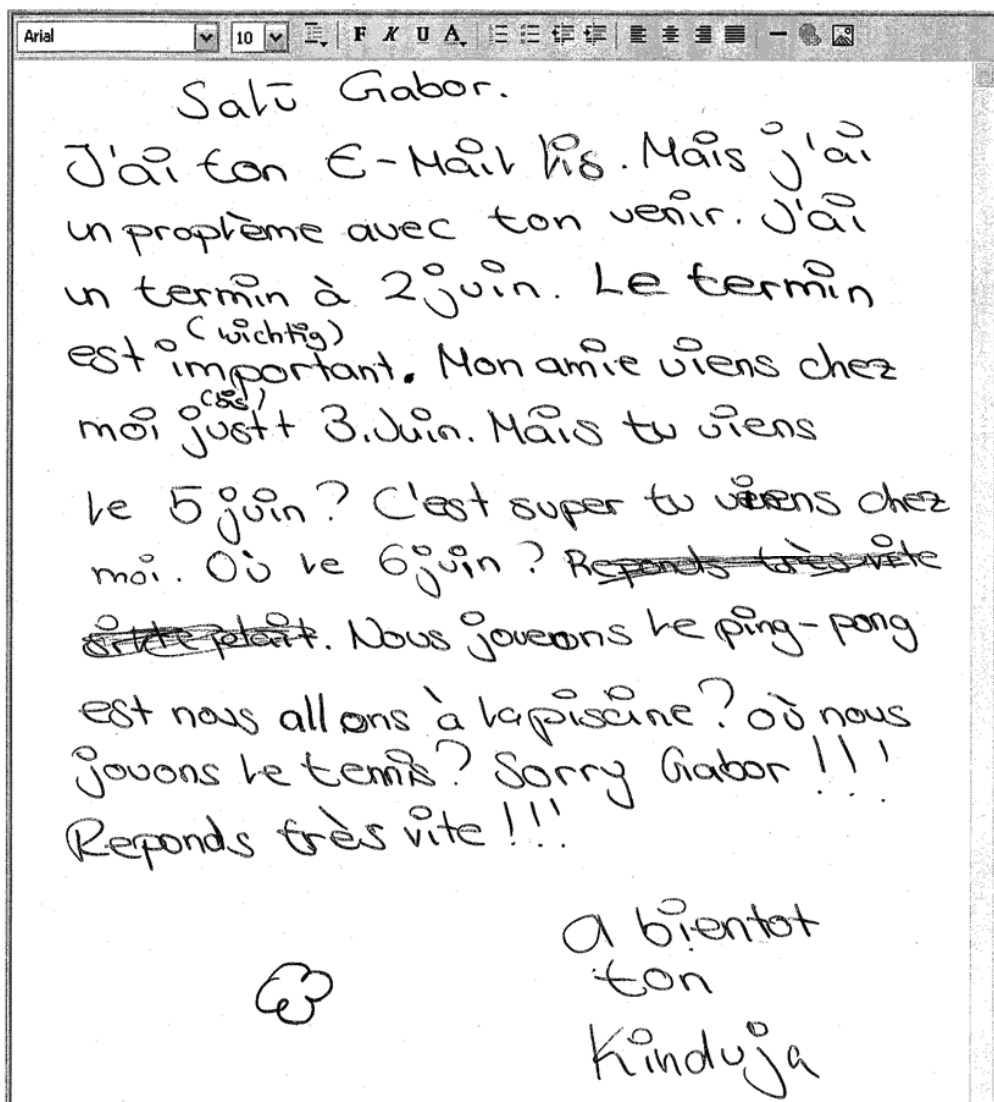 Arial 10 F K U A
Salū Gabor.
J'ai ton E-Mail lis. Mais j'ai
un proplème avec ton venir. J'ai
un termin à 2 juin. Le termin
(wichtig)
est important. Mon amie viens chez
(bis)
moi just+ 3. Juin. Mais tu viens
le 5 juin? C'est super tu viens chez
moi. Où le 6 juin? Reponds très vite
si te plaît. Nous jouons le ping-pong
est nous allons à la piscine? où nous
jouons le tennis? Sorry Gabor!!!
Reponds très vite!!!
a bientot
ton
Kinduja